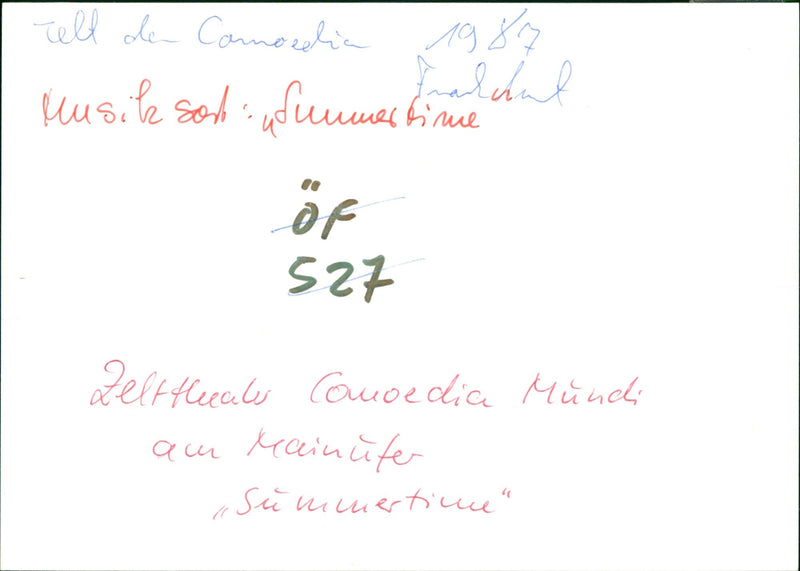 Zelt der Comoedia 1987
Frankfurt
Musik sort: „Summertime
ÖF
527
Zelttheater Comoedia Mundi
am Mainufer
„Summertime"